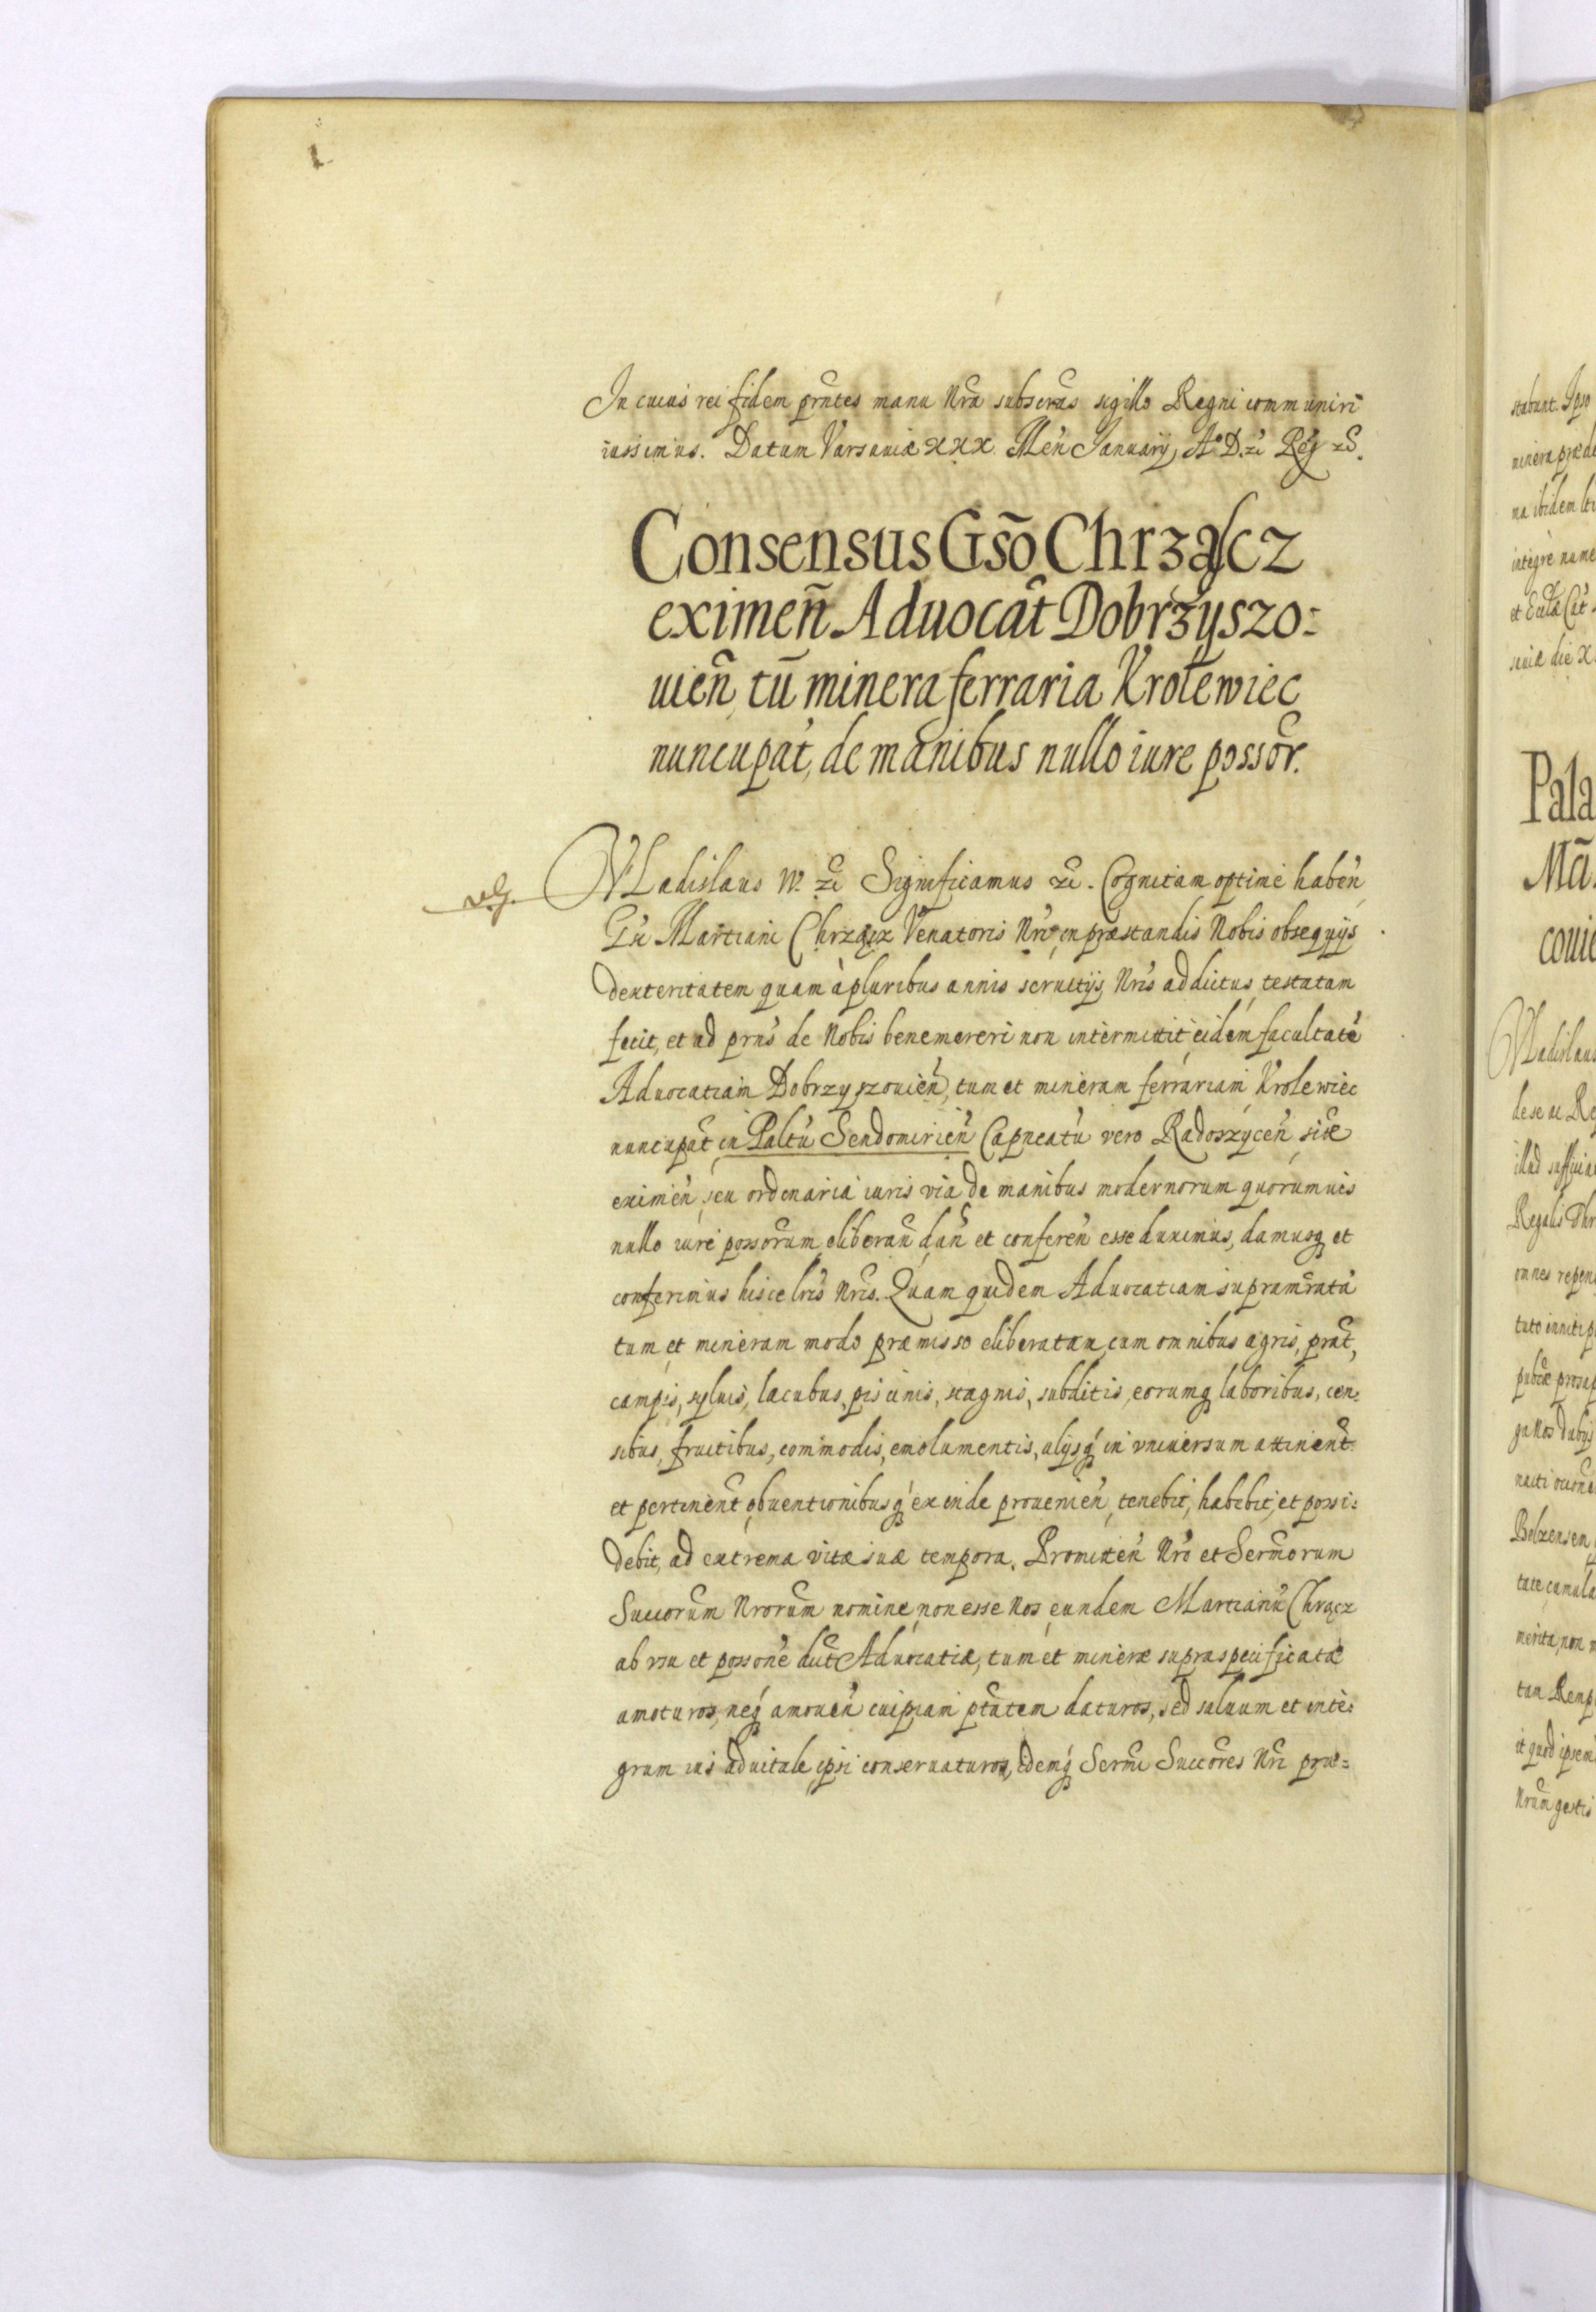 In cuius rei fidem prñtes manu Nrã subscras sigillo Regni communiri
iussimus. Datum Varsauiæ XXX. Men̄ Januarij A° D. zc Reg
Consensus Gsõ Chrząscz
eximeñ Aduocat̃ Dobrzyszo:
uieñ, tũ minera ferraria Krolewiec
nuncupat̃, de manibus nullo iure possõr.
VLadislaus IV. zc Significamus zc. Cognitam optime habeñ
Gñi Martiani Chrząscz Venatoris Nri in præstandis Nobis obsequijs
dexteritatem quam à pluribus annis seruitijs Nris addictus, testatam
fecit, et ad prñs de Nobis benemereri non intermittit, eidem facultatẽ
Aduocatiam Dobrzyszouieñ, tum et mineram ferrariam Krolewiec
nuncupat̃ in Paltũ Sendomirieñ Capneatũ vero Radoszyceñ sitæ
eximeñ, seu ordinaria iuris via de manibus modernorum quorumuis
nullo iure possõrum eliberañ dañ et confereñ esse duximus, damusq et
conferimus hisce lris Nris. Quam quidem Aduocatiam supramratã
tum et mineram modo præmisso eliberatam, cum omnibus agris, prat̃,
campis, syluis, lacubus, piscinis, stagnis, subditis, eorumq laboribus, cen:
sibus, fructibus, commodis, emolumentis, alijsq in vniuersum attinent̃
et pertinent̃ obuentionibusq ex inde prouenieñ, tenebit, habebit, et possi:
debit, ad extrema vitæ suæ tempora. Promitteñ Nro et Sermorum
Succorum Nrorum nomine, non esse Nos eundem Martianũ Chrącz
ab vsu et possone dict̃ Aduocatiæ, tum et mineræ supraspecificatæ
amoturos, neq amoueñ cuipiam ptatem daturos, sed saluum et inte:
grum ius aduitale ipsi conseruaturos, Idemq Sermi Succores Nri præ=